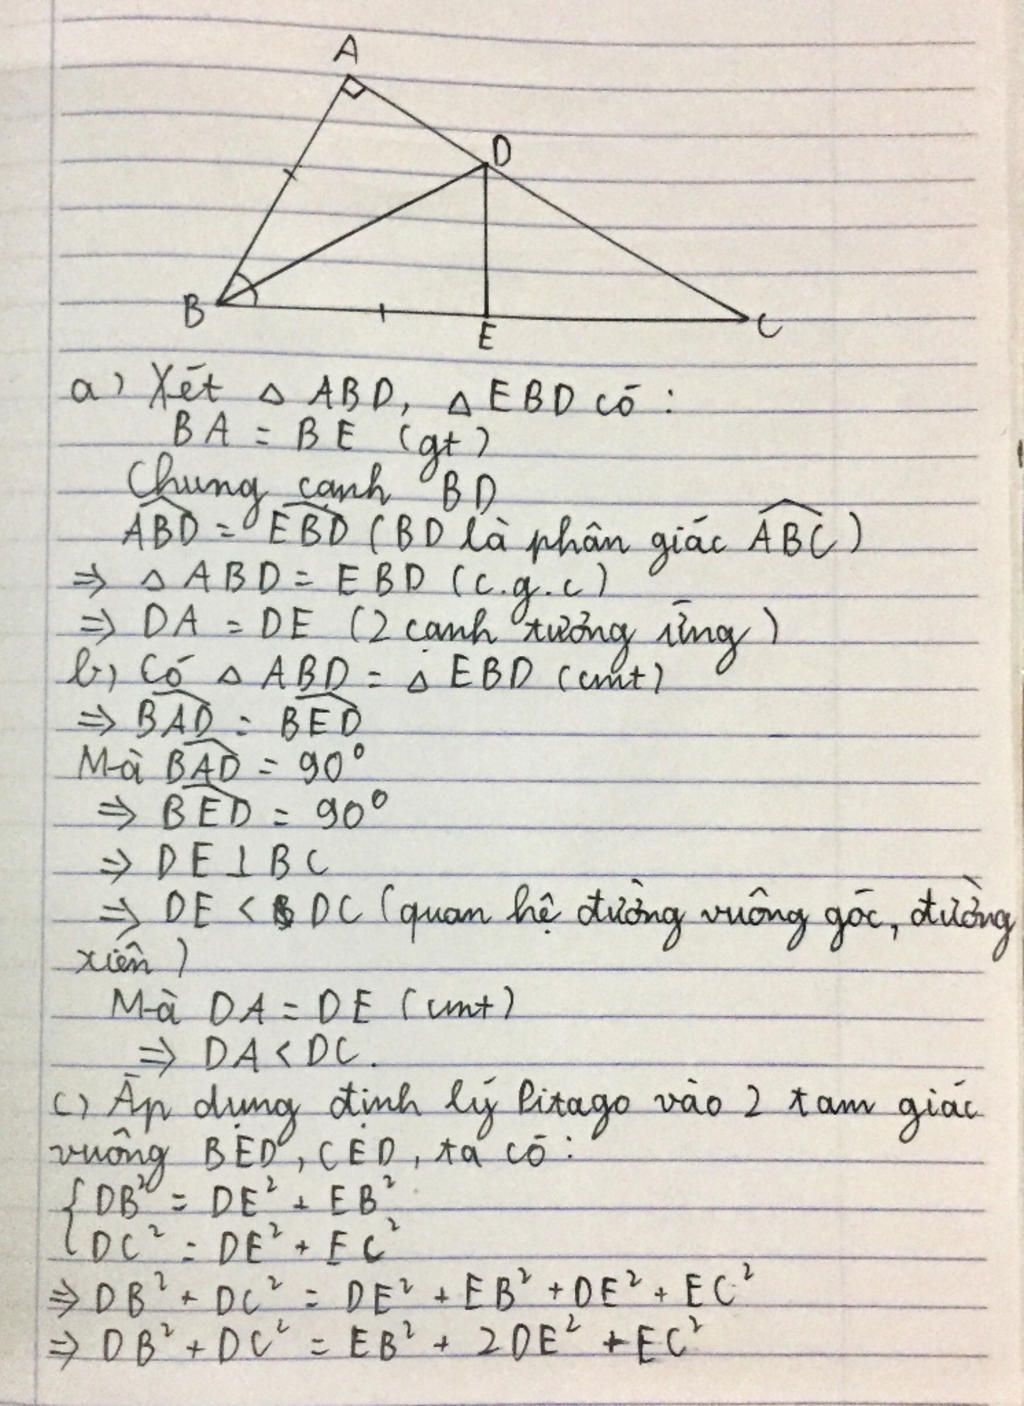 A
D
B
E
C
a) Xét △ ABD, △ EBD có:
BA = BE (gt)
Chung cạnh BD
\widehat{ABD} = \widehat{EBD} (BD là phân giác \widehat{ABC})
⇒ △ ABD = EBD (c.g.c)
⇒ DA = DE (2 cạnh tương ứng)
b) Có △ ABD = △ EBD (cmt)
⇒ \widehat{BAD} = \widehat{BED}
Mà \widehat{BAD} = 90°
⇒ \widehat{BED} = 90°
⇒ DE ⊥ BC
⇒ DE < DC (quan hệ đường vuông góc, đường
xiên)
Mà DA = DE (cmt)
⇒ DA < DC.
c) Áp dụng định lý Pitago vào 2 tam giác
vuông BED, CED, ta có:
{ DB² = DE² + EB²
DC² = DE² + EC²
⇒ DB² + DC² = DE² + EB² + DE² + EC²
⇒ DB² + DC² = EB² + 2DE² + EC²